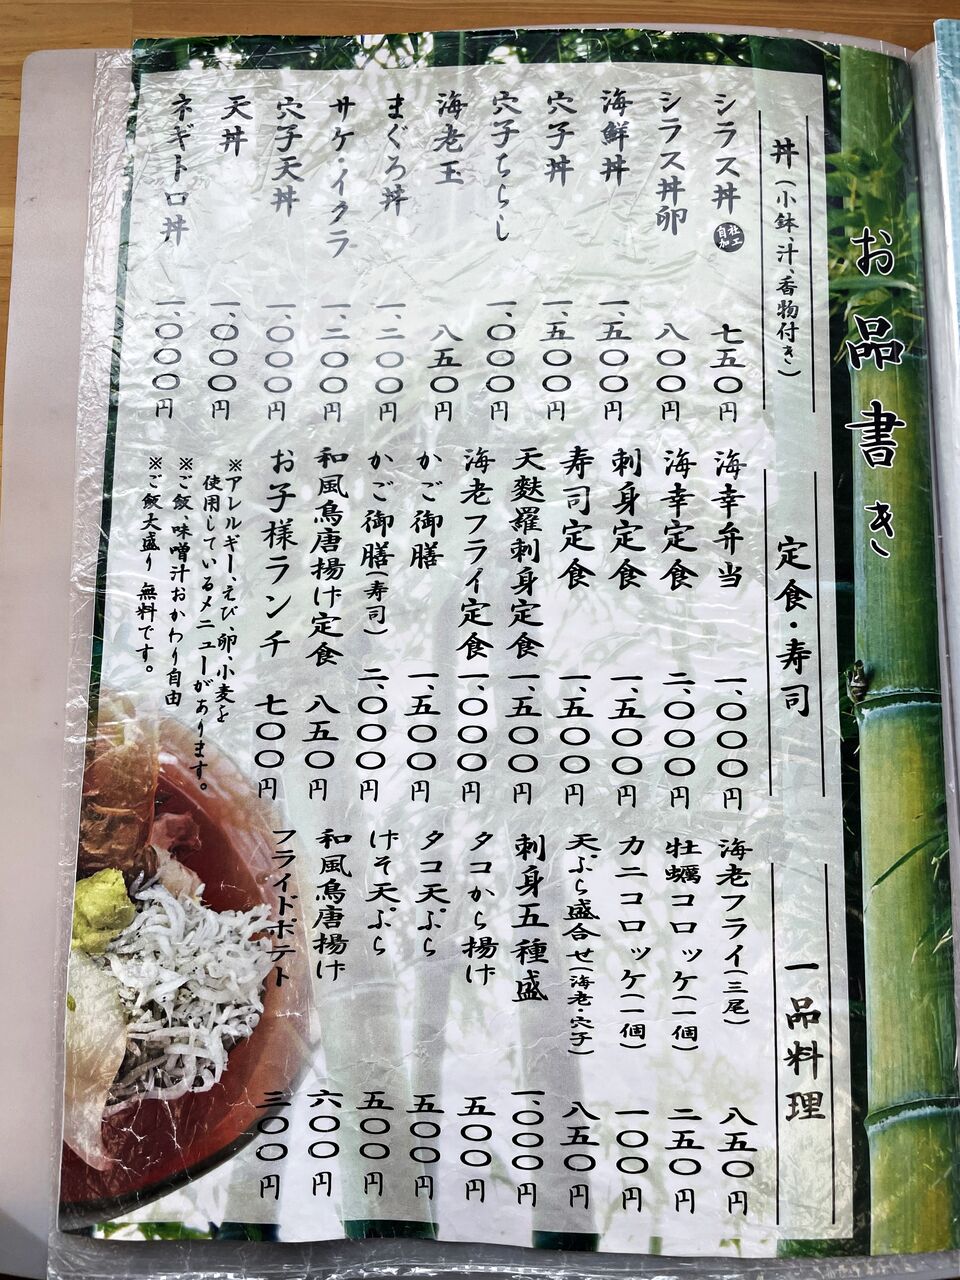 お品書き
丼（小鉢、汁、香物付き）
シラス丼 自社加工 七五〇円
シラス丼卵 八〇〇円
海鮮丼 一、五〇〇円
穴子丼 一、五〇〇円
穴子ちらし 一、〇〇〇円
海老玉 八五〇円
まぐろ丼 一、二〇〇円
サケ・イクラ 一、二〇〇円
穴子天丼 一、〇〇〇円
天丼 一、〇〇〇円
ネギトロ丼 一、〇〇〇円
定食・寿司
海幸弁当 一、〇〇〇円
海幸定食 二、〇〇〇円
刺身定食 一、五〇〇円
寿司定食 一、五〇〇円
天麩羅刺身定食 一、五〇〇円
海老フライ定食 一、〇〇〇円
かご御膳 一、五〇〇円
かご御膳（寿司） 二、〇〇〇円
和風鳥唐揚げ定食 八五〇円
お子様ランチ 七〇〇円
※アレルギー、えび、卵、小麦を
使用しているメニューがあります。
※ご飯、味噌汁おかわり自由
※ご飯大盛り 無料です。
一品料理
海老フライ（三尾） 八五〇円
牡蠣コロッケ（一個） 二五〇円
カニコロッケ（一個） 一〇〇円
天ぷら盛合せ（海老・穴子） 八五〇円
刺身五種盛 一、〇〇〇円
タコから揚げ 五〇〇円
タコ天ぷら 五〇〇円
げそ天ぷら 五〇〇円
和風鳥唐揚げ 六〇〇円
フライドポテト 三〇〇円